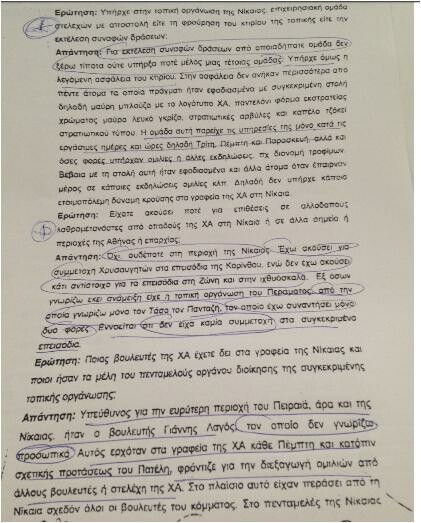 Ερώτηση: Υπήρχε στην τοπική οργάνωση της Νίκαιας, επιχειρησιακή ομάδα
στελεχών με αποστολή είτε τη φρούρηση του κτιρίου της τοπικής είτε την
εκτέλεση συναφών δράσεων;
Απάντηση: Για εκτέλεση συναφών δράσεων από οποιαδήποτε ομάδα δεν
ξέρω τίποτα ούτε υπήρξα ποτέ μέλος μιας τέτοιας ομάδας. Υπήρχε όμως η
λεγόμενη ασφάλεια του κτιρίου. Στην ασφάλεια δεν ανήκαν περισσότερα από
πέντε άτομα τα οποία πράγματι ήταν εφοδιασμένα με συγκεκριμένη στολή
δηλαδή μαύρη μπλούζα με το λογότυπο ΧΑ, παντελόνι φόρμα εκστρατείας
χρώματος μαύρο λευκό γκρίζο, στρατιωτικές αρβύλες και καπέλο τζόκεϊ
στρατιωτικού τύπου. Η ομάδα αυτή παρείχε τις υπηρεσίες της μόνο κατά τις
εργάσιμες ημέρες και ώρες δηλαδή Τρίτη, Πέμπτη και Παρασκευή, αλλά και
όσες φορές υπήρχαν ομιλίες ή άλλες εκδηλώσεις, πχ διανομή τροφίμων.
Βέβαια με τη στολή αυτή ήταν εφοδιασμένα και άλλα άτομα όταν έπαιρναν
μέρος σε κάποιες εκδηλώσεις ομιλίες κλπ. Δηλαδή δεν υπήρχε κάποια
ετοιμοπόλεμη δύναμη κρούσης στα γραφεία της ΧΑ στη Νίκαια.
Ερώτηση: Είχατε ακούσει ποτέ για επιθέσεις σε αλλοδαπούς
λαθρομετανάστες από οπαδούς της ΧΑ στη Νίκαια ή σε άλλα σημεία ή
περιοχές της Αθήνας ή επαρχίας;
Απάντηση: Όχι, ουδέποτε στη περιοχή της Νίκαιας. Έχω ακούσει για
συμμετοχή Χρυσαυγητών στα επεισόδια της Κορίνθου, ενώ δεν έχω ακούσει
κάτι αντίστοιχο για τα επεισόδια στη Ζώνη και στην ιχθυόσκαλα. Εξ όσων
γνωρίζω εκεί ανάμειξη είχε η τοπική οργάνωση του Περάματος, από την
οποία γνωρίζω μόνο τον Τάσο τον Πανταζή, τον οποίο έχω συναντήσει μόνο
δυο φορές. Εννοείται ότι δεν είχα καμία συμμετοχή στα συγκεκριμένα
επεισόδια.
Ερώτηση: Ποιος βουλευτής της ΧΑ έχετε δει στα γραφεία της Νίκαιας και
ποιοι ήσαν τα μέλη του πενταμελούς οργάνου διοίκησης της συγκεκριμένης
τοπικής οργάνωσης;
Απάντηση: Υπεύθυνος για την ευρύτερη περιοχή του Πειραιά, άρα και της
Νίκαιας, ήταν ο βουλευτής Γιάννης Λαγός, τον οποίο δεν γνωρίζω
προσωπικά. Αυτός ερχόταν στα γραφεία της ΧΑ κάθε Πέμπτη και κατόπιν
σχετικής προτάσεως του Πατέλη, φρόντιζε για την διεξαγωγή ομιλιών από
άλλους βουλευτές ή στελέχη της ΧΑ. Στο πλαίσιο αυτό είχαν περάσει από τη
Νίκαια σχεδόν όλοι οι βουλευτές του κόμματος. Στο πενταμελές της Νίκαιας